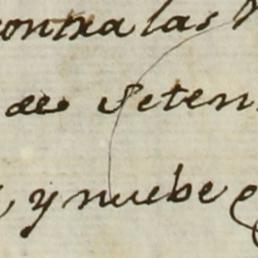 contra las
de Seten
y nuebe